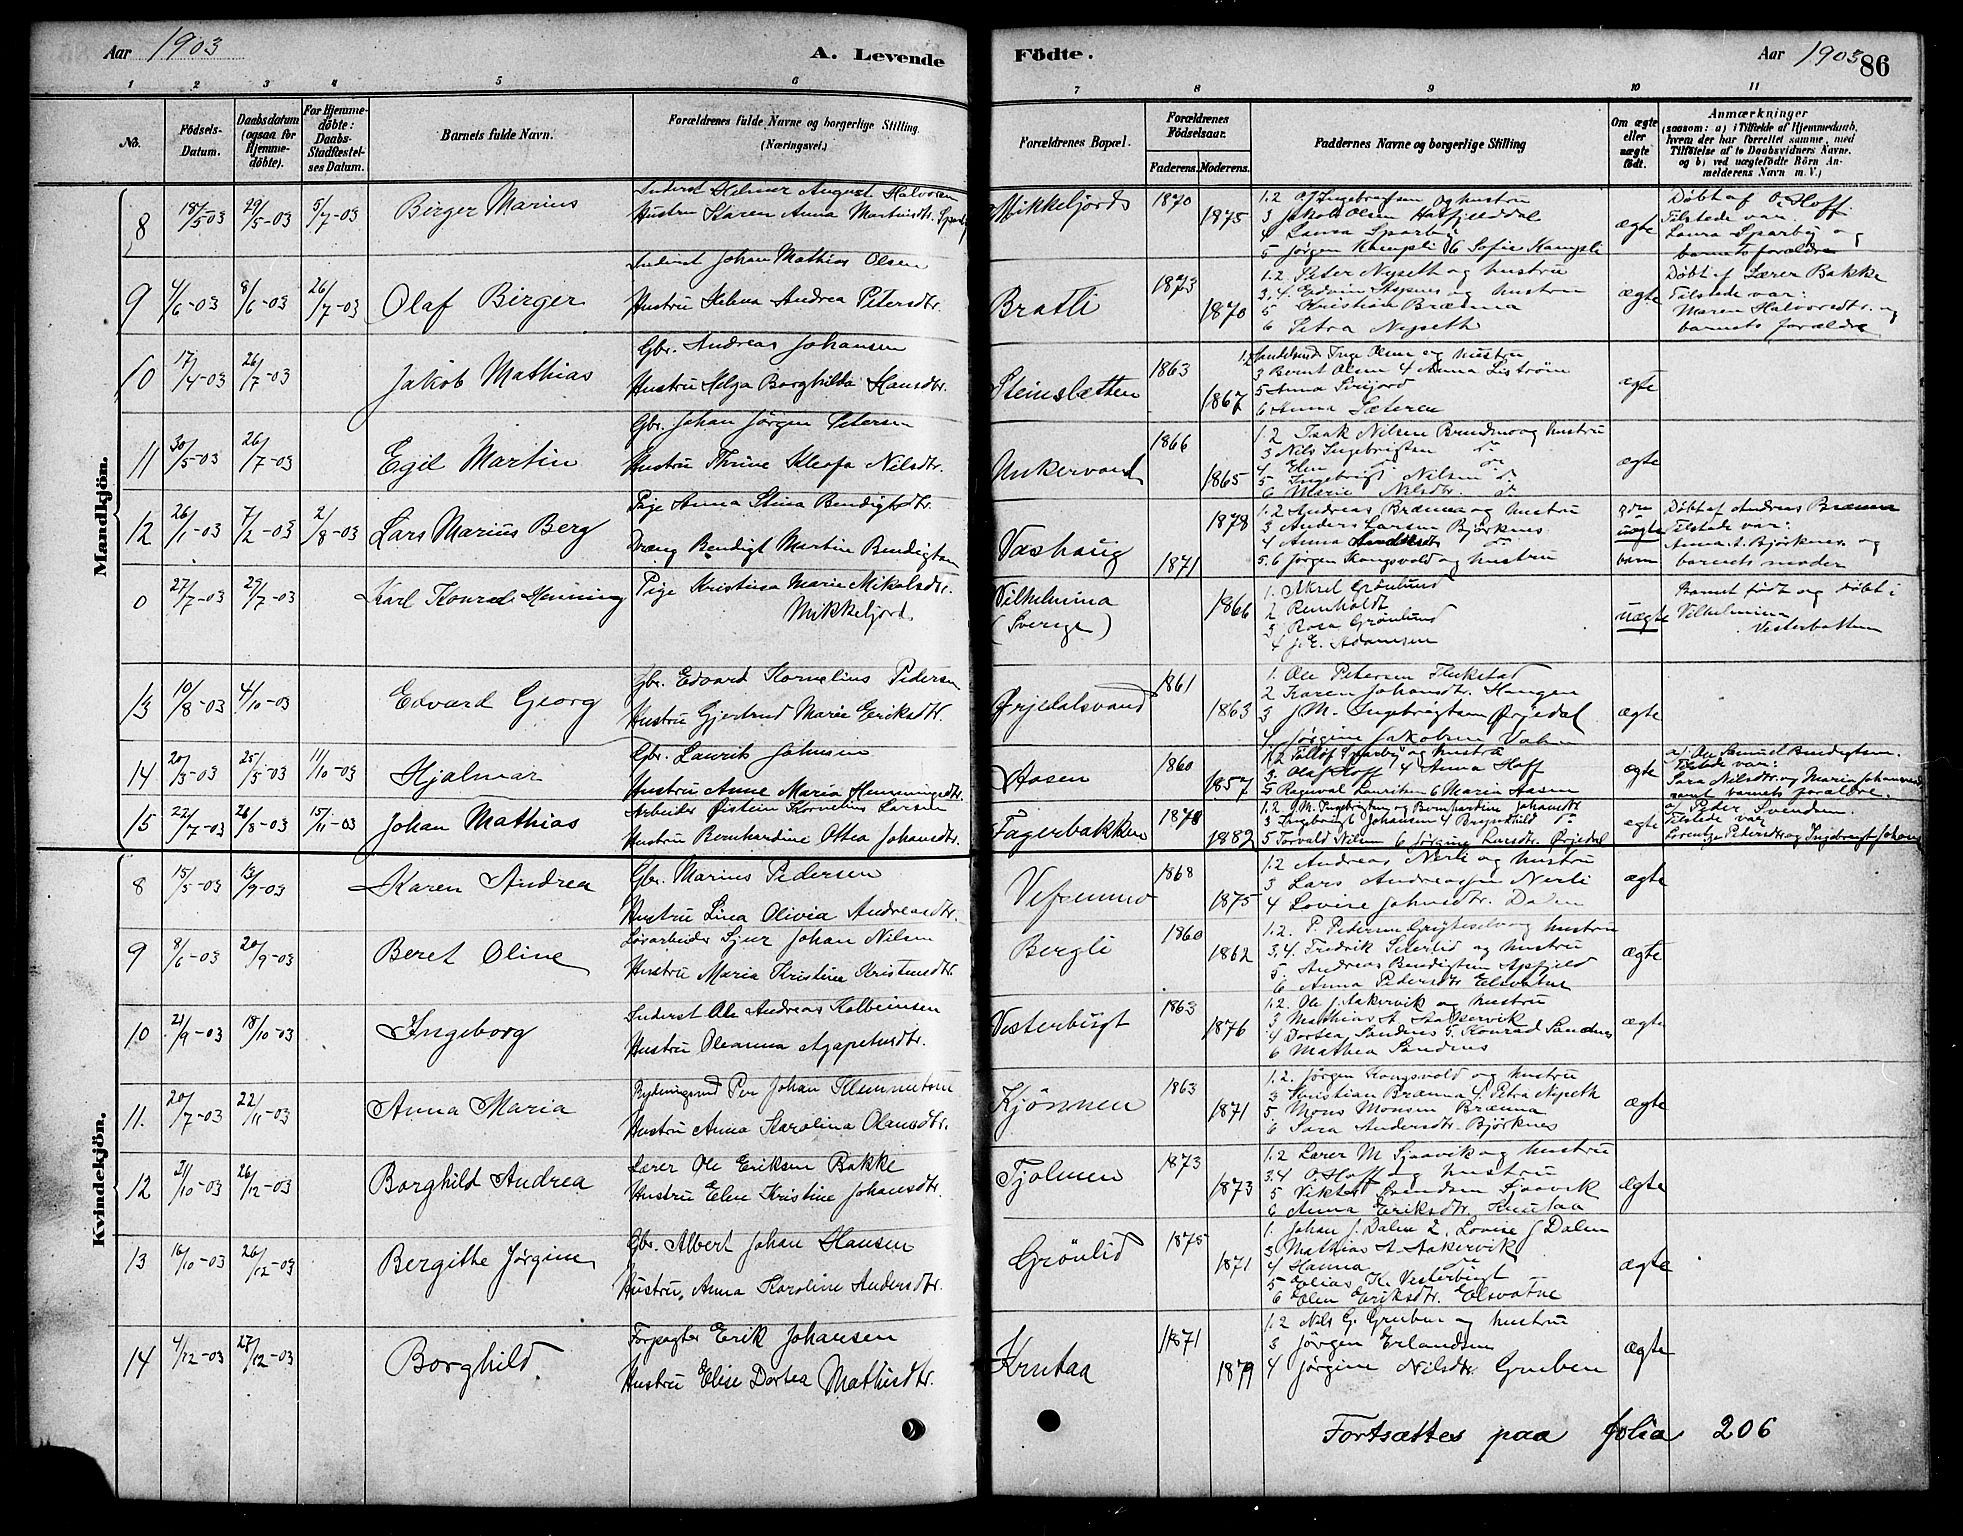 Aar 1903
A. Levende Födte.
Aar 1903
86
1 2 3 4 5 6 7 8 9 10 11
No.
Fødsels-Datum.
Daabsdatum (ogsaa for Hjemme-døbte).
For Hjemme-døbte: Daabs-Stadfæstel-ses Datum.
Barnets fulde Navn.
Forældrenes fulde Navne og borgerlige Stilling.
(Næringsvei.)
Forældrenes Bopæl.
Forældrenes Fødselsaar.
Faderens. Moderens.
Faddernes Navne og borgerlige Stilling
Om ægte eller uægte født.
Anmærkninger
(saasom: a) i Tilfælde af Hjemmedaab, hvem der har forrettet samme, med Tilføielse af to Daabsvidners Navne. og b) ved uægtefødte Børn Anmelderens Navn m. V.)
Mandkjön.
8 18/5-03 29/5-03 5/7-03 Birger Marius
Inderst Helmer August Halvorsen
Hustru Karen Anna Martinsdtr. Sparby
Mikkeljord 1870 1875
1.2 O. Ingebrigtsen og hustru
3 Jakob Olsen Hatfjelddal
4 Laura Sparby
5 Jørgen Kampli 6 Sofie Kampli
ægte
Døbt af O. Hoff.
Tilstede var:
Laura Sparby og
barnets forældre
9 4/6-03 8/6-03 26/7-03 Olaf Birger
Inderst Johan Mathias Olsen
Hustru Helma Andrea Petersdtr.
Bratli 1873 1870
1.2 Peter Nyseth og hustru
3,4. Edvin og hustru
5 Kristian Brænna
6 Petra Nyseth
ægte
Døbt af Lærer Bakke
Tilstede var:
Maren Halvorsdtr. og
barnets forældre
10 17/4-03 26/7-03 Jakob Mathias
Gbr. Andreas Johansen
Hustru Helga Borghilda Hansdtr.
Steinsletten 1863 1867
1.2 Inge Olsen og hustru
3 Bernt Olsen 4 Anna Liström
5 Anna
6 Anna Sæteren
ægte
11 30/5-03 26/7-03 Egil Martin
Gbr. Johan Jörgen Petersen
Hustru Thrine Kleofa Nilsdtr.
Unkervand 1866 1865
1.2 Isak Nilsen og hustru
3 Nils Ingebrigtsen do
4 Elen do
5 Ingebrigt Nilsen do
6 Marie Nilsdtr. do
ægte
12 26/1-03 7/2-03 2/8-03 Lars Marius Berg
Pige Anna Stina Bendigtsdtr.
Dræng Bendigt Martin Bendigtsen
Vashaug 1878 1871
1.2 Andreas Brænna og hustru
3 Anders Larsen Björknes
4 Anna do
5.6 Jörgen Kongsvold og hustru
uægte
barn
Døbt af Andreas Brænna
Tilstede var:
Anna A. Björknes og
barnets moder
0 27/7-03 29/7-03 Karl Konrad Henning
Pige Kristina Marie Mikalsdtr.
Mikkeljord
Vilhelmina
(Sverige)
1866
1. Aksel Grönlund
2 Reinholdt
3 Rosa Grönlund
4 J. E. Adamsen
uægte
Barnet født og døbt i
Vilhelmina
Vesterbotten
13 10/8-03 4/10-03 Edvard Georg
Gbr. Edvard Kornelius Pedersen
Hustru Gjertrud Marie Eriksdtr.
Ørjedalsvand 1861 1863
1. Ole Petersen Flekstad
2 Karen Johansdtr. Haugen
3 J. M. Ingebrigtsen Ørjedal
4 Jörgine Jakobsen
ægte
14 20/5-03 25/5-03 11/10-03 Hjalmar
Gbr. Laurits Johnsen
Hustru Anne Maria Henningsdtr.
Aasen 1860 1857
1.2 Tollef Sparby og hustru
3. Olaf Hoff 4 Anna Hoff
5 Ragnval Lauritsen 6 Maria Aasen
ægte
af Ole Samuel Bendigtsen.
Tilstede var:
Sara Nilsdtr. og Maria Johansen
samt barnets forældre.
15 22/7-03 26/8-03 15/11-03 Johan Mathias
Arbeider Øistein Kornelius Larsen
Hustru Bernhardine Ottea Johansdtr.
Fagerbakken 1878 1882
1.2 J. M. Ingebrigtsen og Bernhardine Johansdtr
3 Ingebrigt Johansen 4 Brynhild do
5 Torvald Nilsen 6 Jörgine Larsdtr. Ørjedal
ægte
af Peder Svendsen.
Tilstede var
Lorentze Petersdtr og Ingebrigt Johans
Kvindekjön.
8 15/5-03 13/9-03 Karen Andrea
Gbr. Marius Pedersen
Hustru Lina Olivia Andreasdtr.
Vefsenmo 1868 1875
1.2 Andreas Nerli og hustru
3 Lars Andreassen Nerli
4 Lovise Johnsdtr. Dalen
ægte
9 8/6-03 20/9-03 Beret Oline
Sjur Johan Nilsen
Hustru Maria Kristina Kristensdtr.
Bergli 1860 1862
1.2. P. Pedersen og hustru
3.4. Fredrik og hustru
5. Andreas Bendigtsen
6 Anna Pedersdtr Elsvatne
ægte
10 21/9-03 18/10-03 Ingeborg
Inderst Ole Andreas Kolbeinsen
Hustru Oleanna Agapetusdtr.
Vesterbugt 1863 1876
1.2. Ole J. Aakervik og hustru
3 Matthias A. Aakervik
4 Dortea Sandnes 5. Konrad Sandnes
6 Mathea Sandnes
ægte
11. 20/7-03 22/11-03 Anna Maria
Rydningsmd Per Johan Klemmetsen
Hustru Anna Karolina Olausdtr.
Kjönmen 1863 1871
1.2. Jörgen Kongsvold og hustru
3 Kristian Brænna 4. Petra Nyseth
5. Mons Monsen Brænna
6 Sara Andersdtr. Björknes
ægte
12 2/10-03 26/12-03 Borghild Andrea
Lærer Ole Eriksen Bakke
Hustru Elen Kristine Johansdtr.
Tjolmen 1873 1873
1.2 Lærer M Sjaavik og hustru
3.4 O. Hoff og hustru
5 Viktor Svendsen Sjaavik
6 Anna Eriksdtr. Krutaa
ægte
13 16/10-03 26/12-03 Bergithe Jørgine
Gbr. Albert Johan Hansen
Hustru, Anna Karoline Andersdtr.
Grönlid 1875 1871
1. Johan J. Dalen 2. Lovise J Dalen
3 Mathias A. Aakervik
4 Hanna do
5 Elias K. Vesterbugt
6 Elen Eriksdtr. Elsvatne
ægte
14 4/12-03 27/12-03 Borghild.
Forpagter Erik Johansen
Hustru Elise Dortea Mathisdtr.
Krutaa 1871 1879
1.2 Nils G. Gruben og hustru
3 Jörgen Erlandsen
4 Jörgine Nilsdtr. Gruben
ægte
Fortsættes paa folia 206